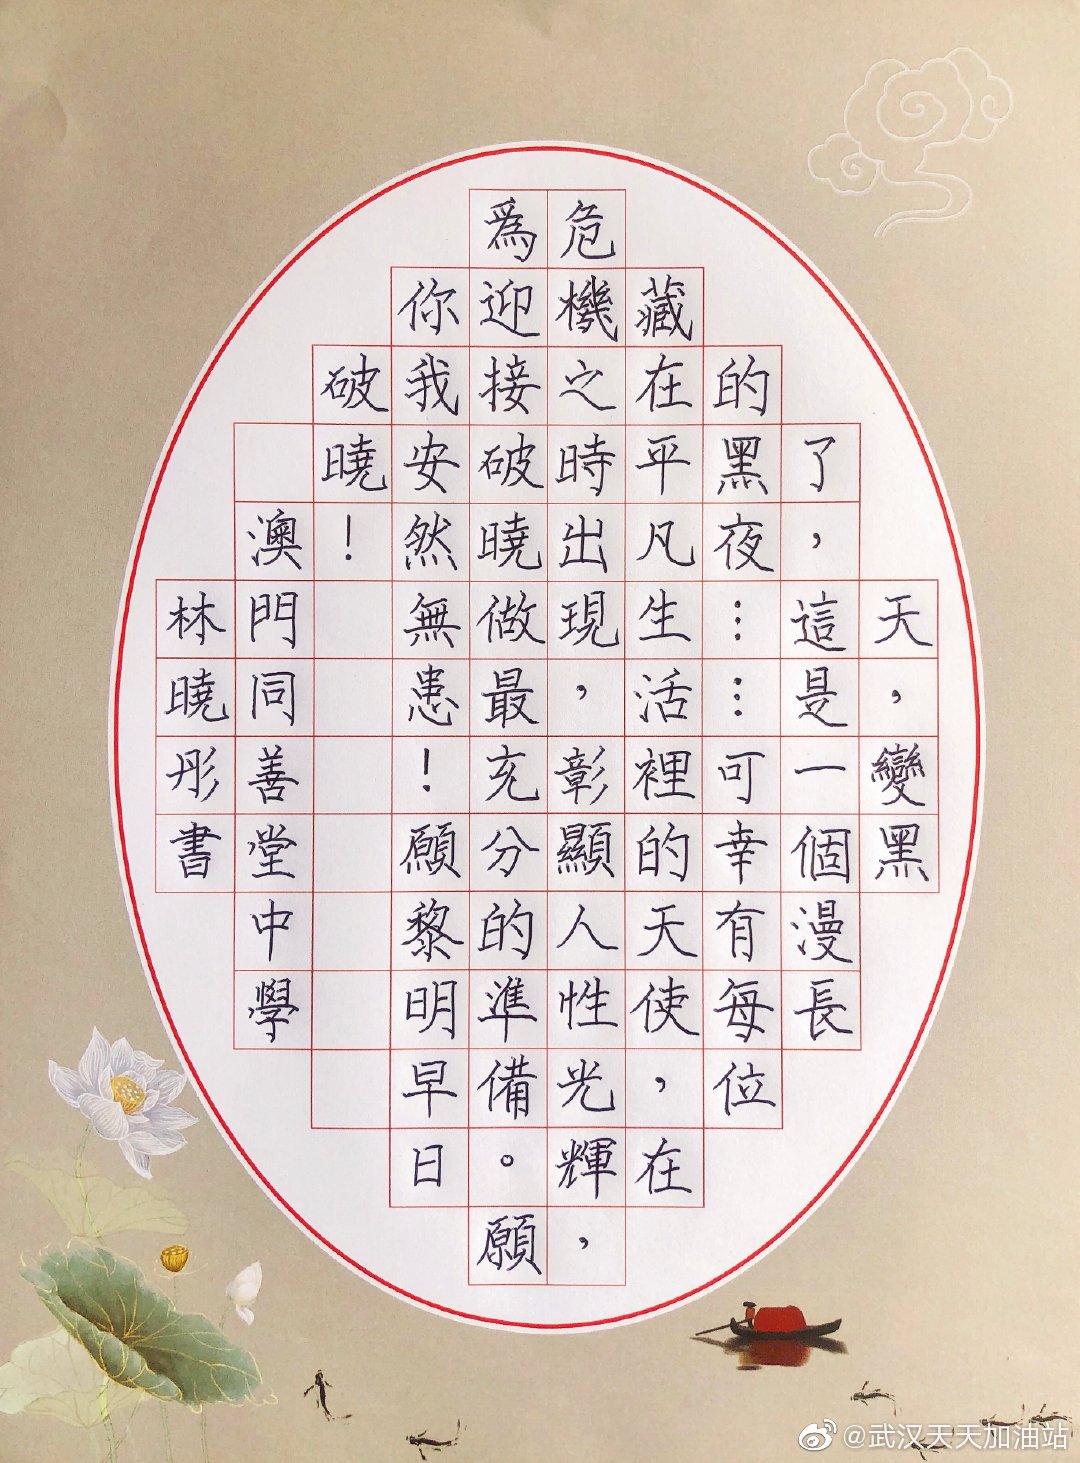 天，變黑
了，這是一個漫長
的黑夜……可幸有每位
藏在平凡生活裡的天使，在
危機之時出現，彰顯人性光輝，
為迎接破曉做最充分的準備。願
你我安然無患！願黎明早日
破曉！
澳門同善堂中學
林曉彤書
@武汉天天加油站